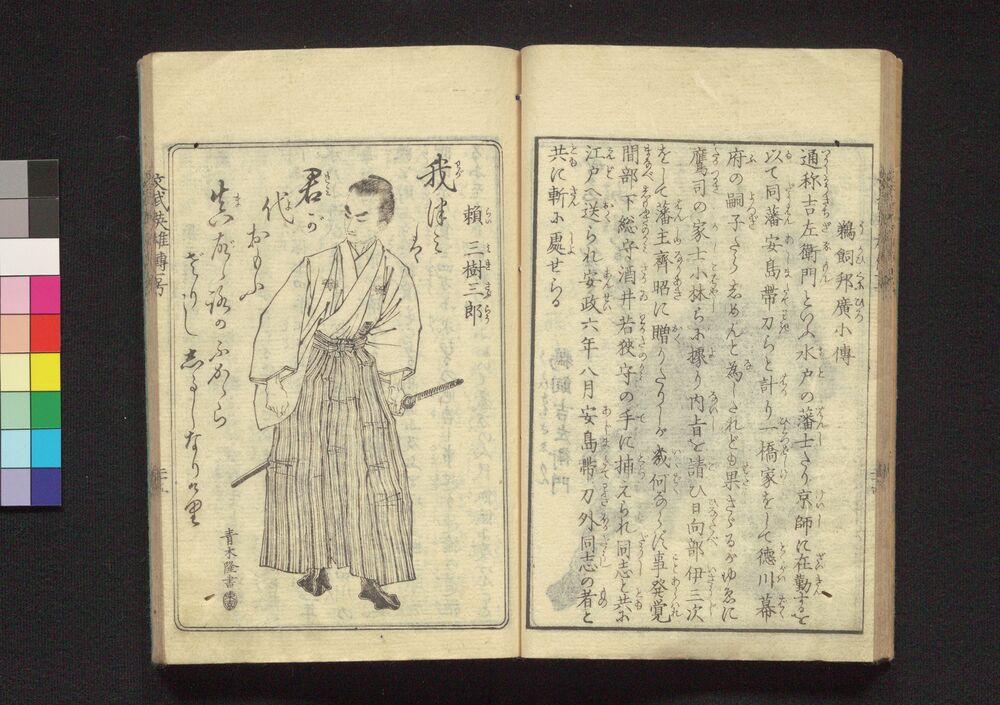 鵜飼邦廣小傳
通称吉左衛門といふ水戸の藩士たり京師に在勤するを
以て同藩安島帯刀らと計り一橋家をして徳川幕
府の嗣子たらしめんと為しされども果さゞるがゆゑに
鷹司の家士小林らに據り内旨を請ひ日向部伊三次
をして藩主齊昭に贈りたりしが幾何ならず事発覚
間部下総守酒井若狹守の手に捕えられ同志と共に
江戸へ送られ安政六年八月安島帯刀外同志の者と
共に斬に處せらる
頼三樹三郎
我つみは
君が
代おもふ
まごゝろの
ふかからざりし
しるしなりけり
青木隆書
文武英雄傳一号